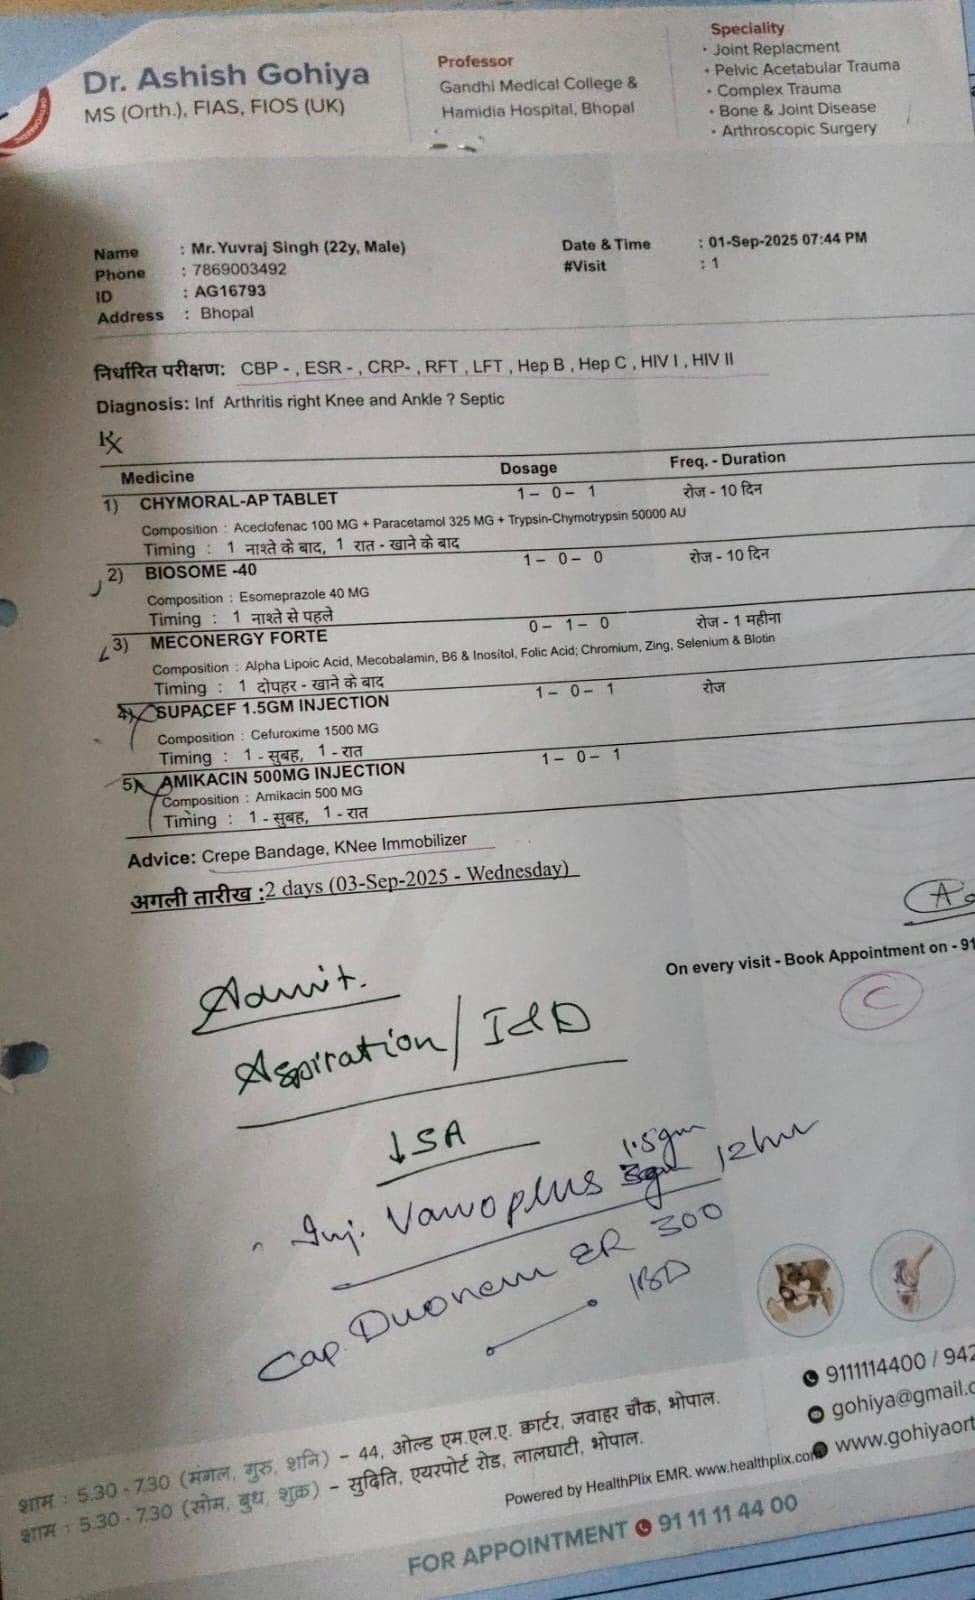 Dr. Ashish Gohiya
MS (Orth.), FIAS, FIOS (UK)
Professor
Gandhi Medical College &
Hamidia Hospital, Bhopal
Speciality
• Joint Replacment
• Pelvic Acetabular Trauma
• Complex Trauma
• Bone & Joint Disease
• Arthroscopic Surgery
Name : Mr. Yuvraj Singh (22y, Male)
Phone : 7869003492
ID : AG16793
Address : Bhopal
Date & Time : 01-Sep-2025 07:44 PM
#Visit : 1
निर्धारित परीक्षण: CBP - , ESR - , CRP- , RFT , LFT , Hep B , Hep C , HIV I , HIV II
Diagnosis: Inf Arthritis right Knee and Ankle ? Septic
Rx
Medicine Dosage Freq. - Duration
1) CHYMORAL-AP TABLET 1 - 0 - 1 रोज - 10 दिन
Composition : Aceclofenac 100 MG + Paracetamol 325 MG + Trypsin-Chymotrypsin 50000 AU
Timing : 1 नाश्ते के बाद, 1 रात - खाने के बाद
2) BIOSOME -40 1 - 0 - 0 रोज - 10 दिन
Composition : Esomeprazole 40 MG
Timing : 1 नाश्ते से पहले
3) MECONERGY FORTE 0 - 1 - 0 रोज - 1 महीना
Composition : Alpha Lipoic Acid, Mecobalamin, B6 & Inositol, Folic Acid; Chromium, Zing, Selenium & Biotin
Timing : 1 दोपहर - खाने के बाद
4) SUPACEF 1.5GM INJECTION 1 - 0 - 1 रोज
Composition : Cefuroxime 1500 MG
Timing : 1 - सुबह, 1 - रात
5) AMIKACIN 500MG INJECTION 1 - 0 - 1
Composition : Amikacin 500 MG
Timing : 1 - सुबह, 1 - रात
Advice: Crepe Bandage, KNee Immobilizer
अगली तारीख :2 days (03-Sep-2025 - Wednesday)
On every visit - Book Appointment on - 91
C
Admit.
Aspiration / I&D
↓ SA
1.5gm
Inj. Vanoplus 12hr
Cap. Duonem ER 300
1BD
9111114400 / 942
gohiya@gmail.c
www.gohiyaort
शाम : 5.30 - 7.30 (मंगल, गुरु, शनि) – 44, ओल्ड एम.एल.ए. क्वार्टर, जवाहर चौक, भोपाल.
शाम : 5.30 - 7.30 (सोम, बुध, शुक्र) – सुदिति, एयरपोर्ट रोड, लालघाटी, भोपाल.
Powered by HealthPlix EMR. www.healthplix.com
FOR APPOINTMENT 91 11 11 44 00